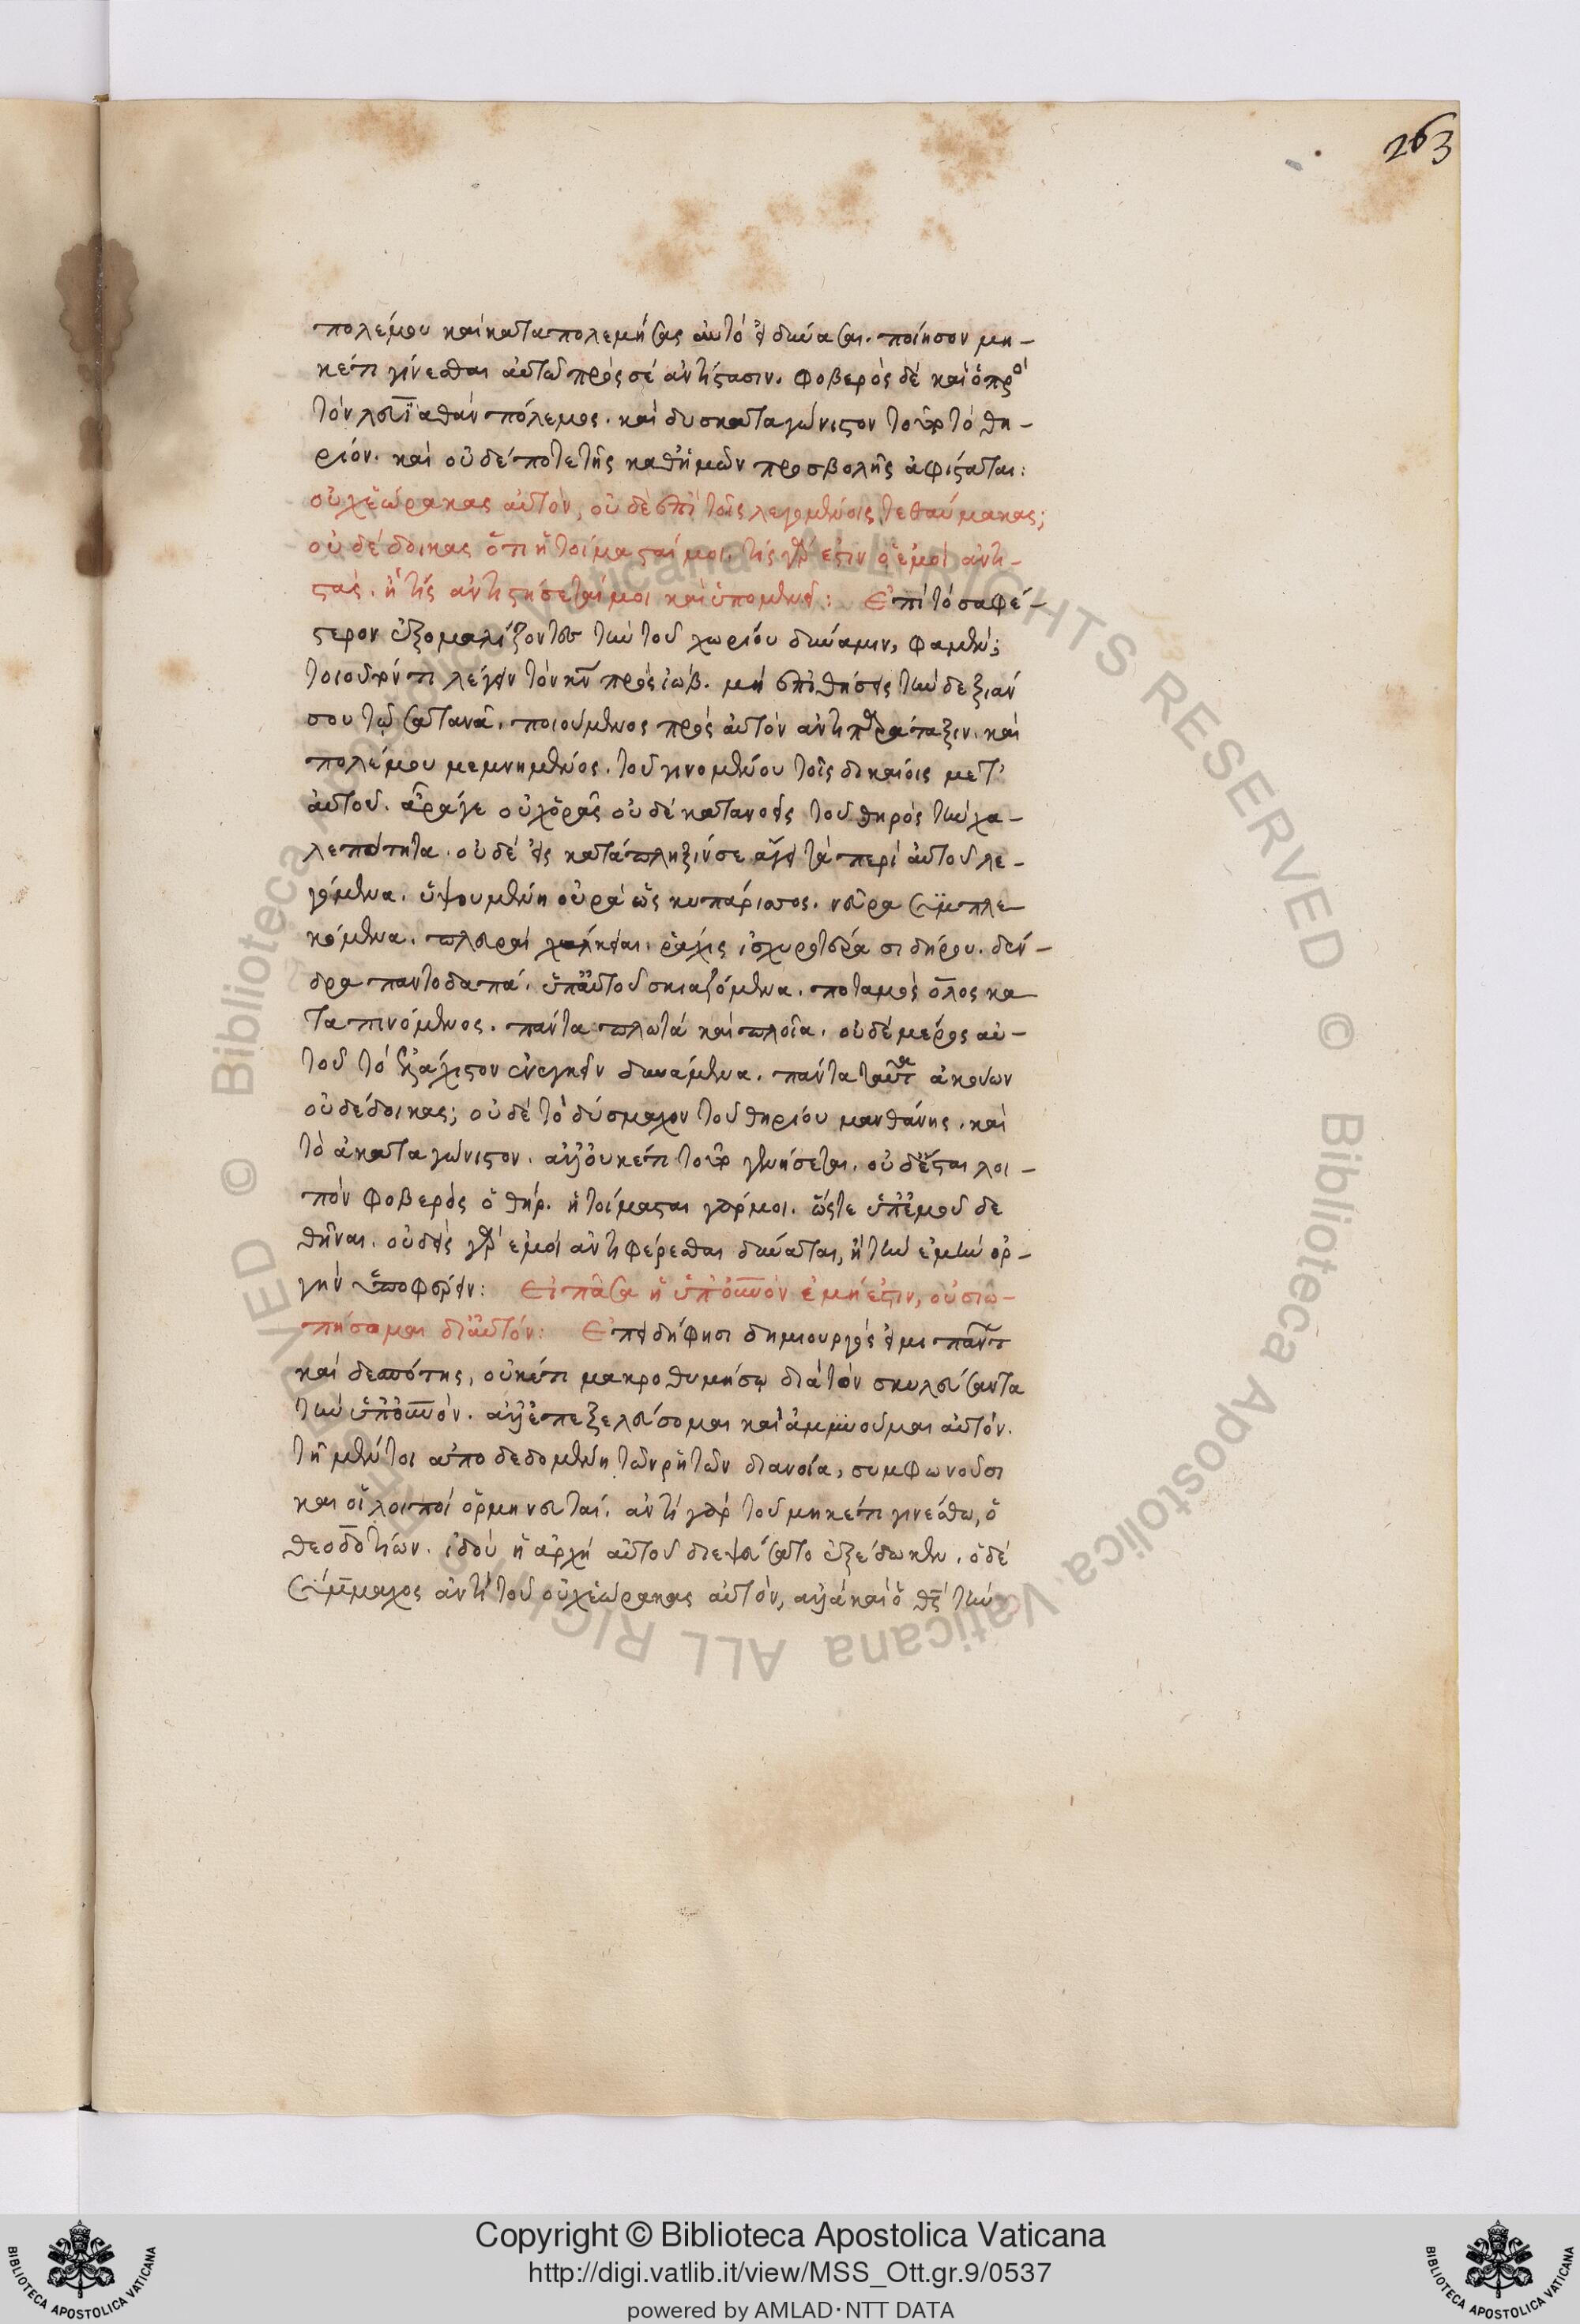 263
πολέμου καὶ καταπολεμήσας αὐτὸ εἰ δύνασαι. ποίησον μη-
κέτι γίνεσθαι αὐτῶ πρὸς σὲ ἀντίστασιν. φοβερὸς δὲ καὶ ὁ πρὸς
τὸν λευϊαθὰν πόλεμος. καὶ δυσκαταγώνιστον τοῦτο τὸ θη-
ρίον. καὶ οὐδέποτε τῆς καθ' ἡμῶν προσβολῆς ἀφίσταται:
οὐχ ἑώρακας αὐτόν, οὐδὲ ἐπὶ τοῖς λεγομένοις τεθαύμακας;
οὐ δέδοικας ὅτι ἡτοίμασταί μοι. τίς γάρ ἐστιν ὁ ἐμοὶ ἀντι-
στάς. ἢ τίς ἀντιστήσεταί μοι καὶ ὑπομενεῖ: Ἐπὶ τὸ σαφέ-
στερον ἐξομαλίζοντες τὴν τοῦ χωρίου δύναμιν, φαμέν;
τοιοῦτόν τι λέγειν τὸν κν πρὸς ἰώβ. μὴ ἐπιθήσεις τὴν δεξιάν
σου τῷ σατανᾶ. ποιούμενος πρὸς αὐτὸν ἀντιπαράταξιν. καὶ
πολέμου μεμνημένος. τοῦ γινομένου τοῖς δικαίοις μετ'
αὐτοῦ. ἆρά γε οὐχ ὁρᾶς οὐδὲ κατανοεῖς τοῦ θηρὸς τὴν χα-
λεπότητα. οὐδὲ εἰς κατάπληξίν σε ἄγει τὰ περὶ αὐτοῦ λε-
γόμενα. ὑψουμένη οὐρὰ ὡς κυπάρισσος. νεῦρα συμπλε-
κόμενα. πλευραὶ χαλκειαι. ῥάχις ἰσχυροτέρα σιδήρου. δέν-
δρα παντοδαπά. ὑπ' αὐτοῦ σκιαζόμενα. ποταμὸς ὅλος κα-
ταπινόμενος. πάντα πλωτὰ καὶ πλοῖα. οὐδὲ μέρος αὐ-
τοῦ τὸ ἐλάχιστον ἐνεγκεῖν δυνάμενα. πάντα ταῦτα ἀκούων
οὐ δέδοικας; οὐδὲ τὸ δύσμαχον τοῦ θηρίου μανθάνης. καὶ
τὸ ἀκαταγώνιστον. ἀλλ' οὐκέτι τοῦτο γενήσεται. οὐδ' ἔσται λοι-
πὸν φοβερὸς ὁ θήρ. ἡτοίμασται γάρ μοι. ὥστε ὑπ' ἐμοῦ δε
θῆναι. οὐδεὶς γὰρ ἐμοὶ ἀντιφέρεσθαι δύναται, ἢ τὴν ἐμὴν ὀρ-
γὴν ὑποφέρειν: Εἰ πᾶσα ἡ ὑπ' οὐνὸν ἐμή ἐστιν, οὐ σιω-
πήσομαι δι' αὐτόν: Ἐπειδή φησι δημιουργός εἰμι παντ
καὶ δεσπότης, οὐκέτι μακροθυμήσω διὰ τὸν σκυλεύσαντα
τὴν ὑπ' οὐνόν. ἀλλ' ἐπεξελεύσομαι καὶ ἀμυνοῦμαι αὐτόν.
τῇ μέντοι ἀποδεδομένη τῶν ῥητῶν διανοία, συμφωνοῦσι
και οἱ λοιποὶ ἑρμηνευταί. ἀντὶ γὰρ τοῦ μηκέτι γινέσθω, ὁ
θεοδοτίων. ἰδοὺ ἡ ἀρχὴ αὐτοῦ διεψεύσατο ἐξέδωκεν. ὁ δὲ
σύμμαχος ἀντὶ τοῦ οὐχ ἑώρακας αὐτόν, ἀλλὰ καὶ ὁ θς τὴν
Copyright © Biblioteca Apostolica Vaticana
http://digi.vatlib.it/view/MSS_Ott.gr.9/0537
powered by AMLAD·NTT DATA